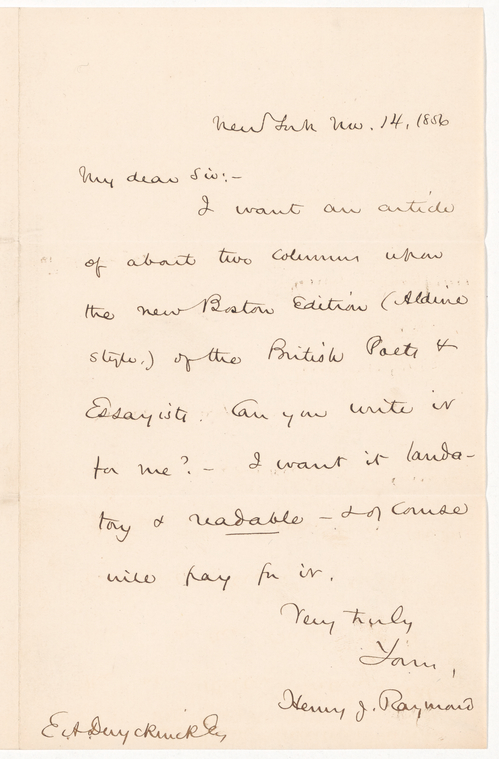 New York Nov. 14, 1856
My dear Sir:-
I want an article
of about two columns upon
the new Boston Edition (Aldine
style.) of the British Poets &
Essayists. Can you write it
for me? - I want it lauda-
tory & readable - & of course
will pay for it.
Very truly
Yours,
Henry J. Raymond
E A Duyckinck Esq